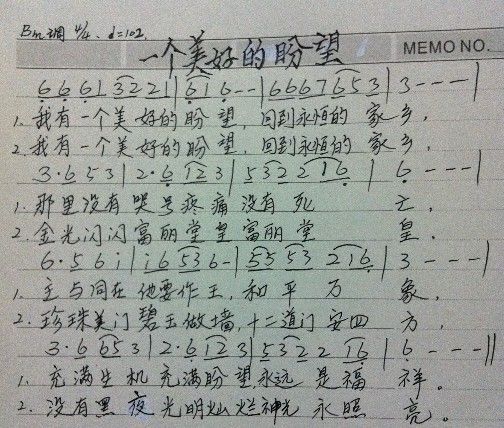 Bm调 4/4 ♩=102
一个美好的盼望
MEMO NO.
6 6 6 1 3 2 2 1 | 6 1 6 - - | 6 6 6 7 6 5 3 | 3 - - - |
1. 我有一个美好的盼望,回到永恒的家乡,
2. 我有一个美好的盼望,回到永恒的家乡,
3 · 6 5 3 | 2 · 6 1 2 3 | 5 3 2 2 1 6 | 6 - - - |
1. 那里没有哭号疼痛没有死亡,
2. 金光闪闪富丽堂皇富丽堂皇
6 · 5 6 i | i 6 5 3 6 - | 5 5 5 3 2 1 6 | 3 - - - |
1. 主与同在他要作王,和平万象,
2. 珍珠美门碧玉做墙,十二道门安四方,
3 · 6 6 5 3 | 2 · 6 1 2 3 | 5 3 2 2 1 6 | 6 - - - ||
1. 充满生机充满盼望永远是福祥。
2. 没有黑夜光明灿烂神光永照亮。